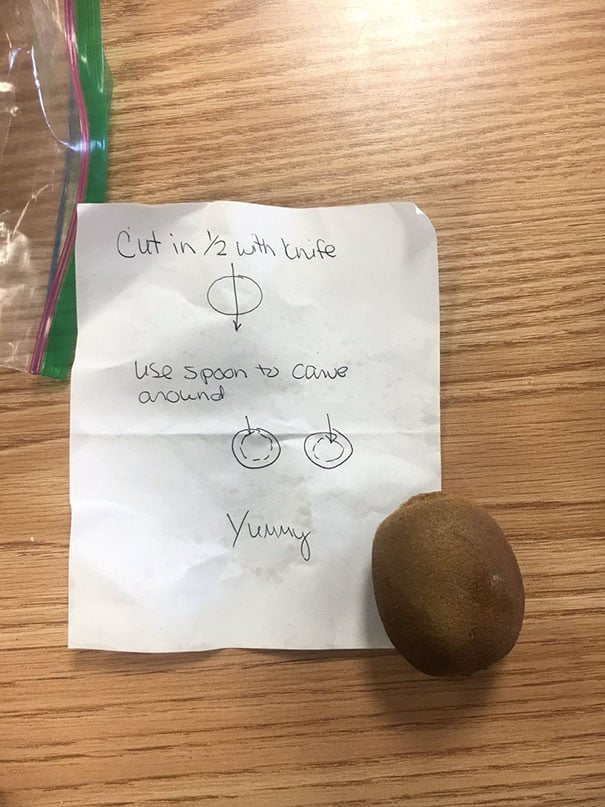 Cut in 1/2 with knife
use spoon to carve
around
Yummy